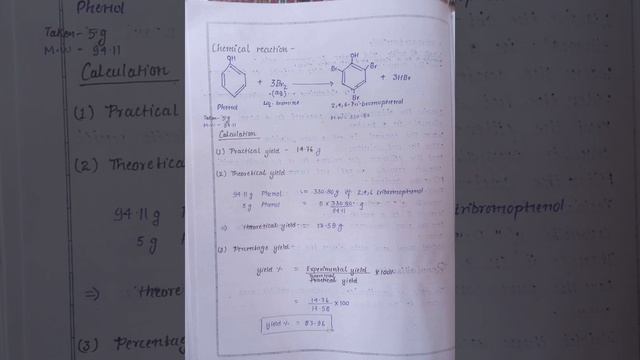 Chemical reaction -
OH
OH
Br
Br
+ 3Br2
+ 3HBr
(aq)
Br
Phenol
liq. bromine
2,4,6-Tribromophenol
Taken - 5g
M.W - 94.11
M.W = 330.80
Calculation
(1) Practical yield - 14.76 g
(2) Theoretical yield
94.11 g Phenol = 330.80g of 2,4,6 tribromophenol
5g Phenol = 5 x 330.80 g " "
94.11
⇒ theoretical yield = 17.58 g
(3) Percentage yield -
yield % = Experimental yield x 100
Theoretical
Practical yield
= 14.76 x 100
17.58
yield % = 83.96
Phenol
Taken - 5g
M.W - 94.11
Calculation
(1) Practical
(2) Theore
94.11 g
5 g
⇒ theore
(3) Percenta
tribromophenol
" "